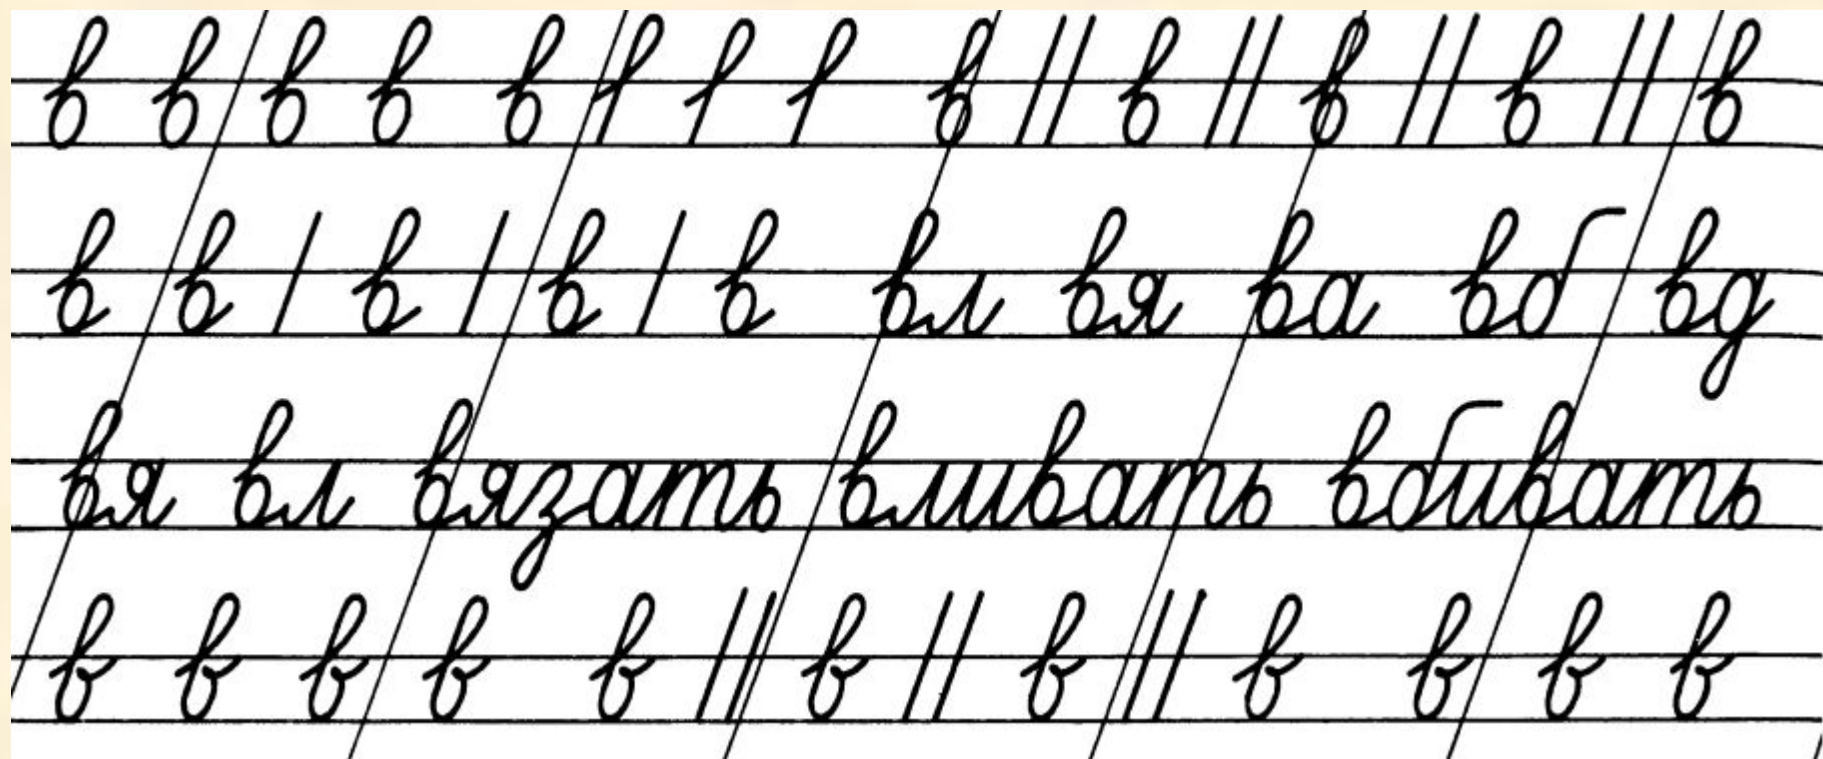 в в в в в в в в в // в // в // в // в
в в / в / в / в вл вя ва вб вд
вя вл вязать вливать вбивать
в в в в в // в // в // в в в в